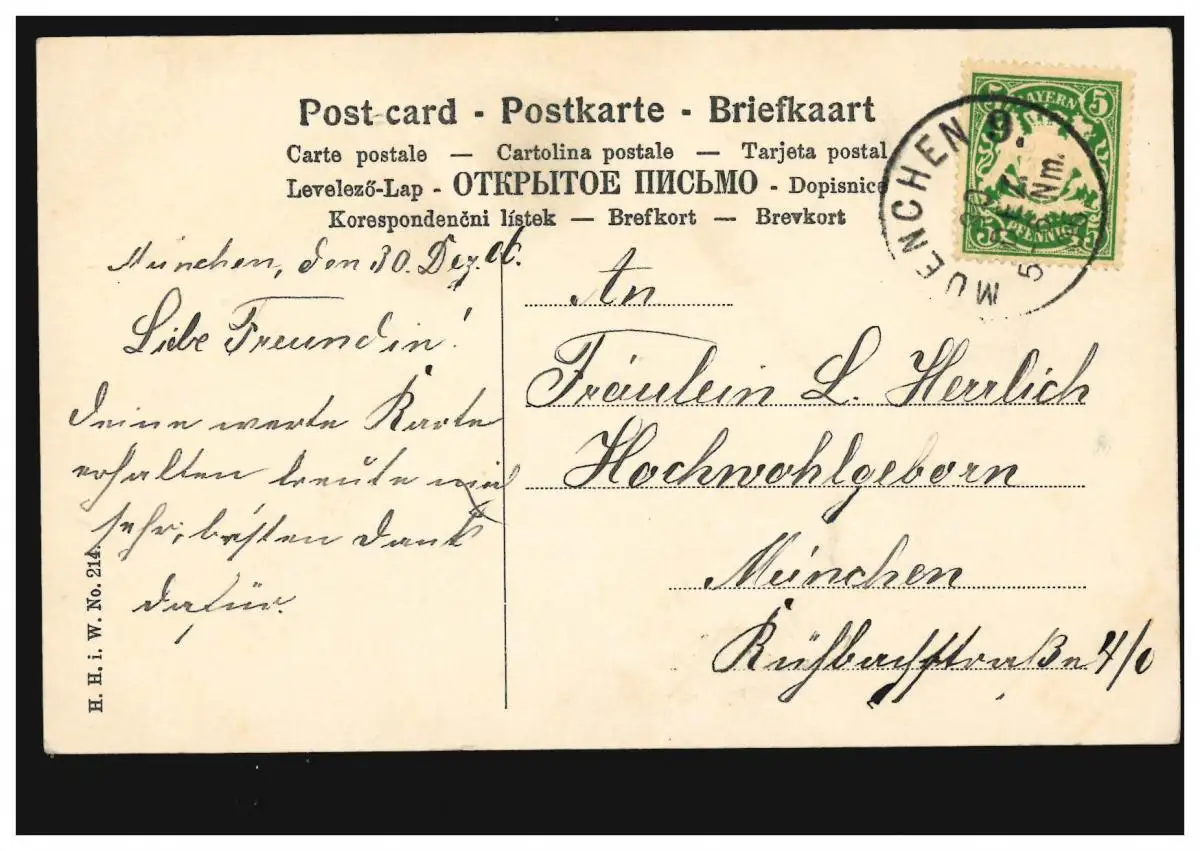 Post-card - Postkarte - Briefkaart
Carte postale — Cartolina postale — Tarjeta postal
Levelező-Lap - ОТКРЫТОЕ ПИСЬМО - Dopisnice
Korespondenčni lístek — Brefkort — Brevkort
5 BAYERN 5
PFENNIG
MUENCHEN 9.
30
Nm.
München, den 30. Dez. 06.
Liebe Freundin!
Deine werte Karte
erhalten freute mich
sehr, besten Dank
dafür.
An
Fräulein L. Herrlich
Hochwohlgeborn
München
Kühbachstraße 4/0
H. H. i. W. No. 214.